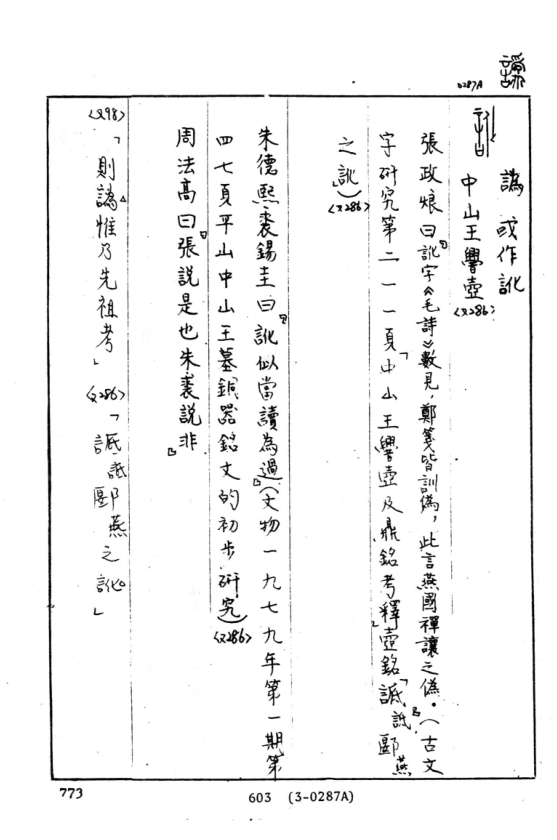 譌
0287A
譌 或作訛
中山王𰯼壺<又286>
張政烺曰「訛字《毛詩》數見，鄭箋皆訓偽，此言燕國禪讓之偽。」（古文
字研究第二一一頁「中山王𰯼壺及鼎銘考釋」壺銘「詆詆郾燕
之訛」）<又286>
朱德熙裘錫圭曰「訛似當讀為過」（文物一九七九年第一期第
四七頁平山中山王墓銅器銘文的初步研究）<又286>
周法高曰「張說是也朱裘說非」
<又98>「則譌惟乃先祖考」<又286>「詆詆郾燕之訛」
773
603 (3-0287A)